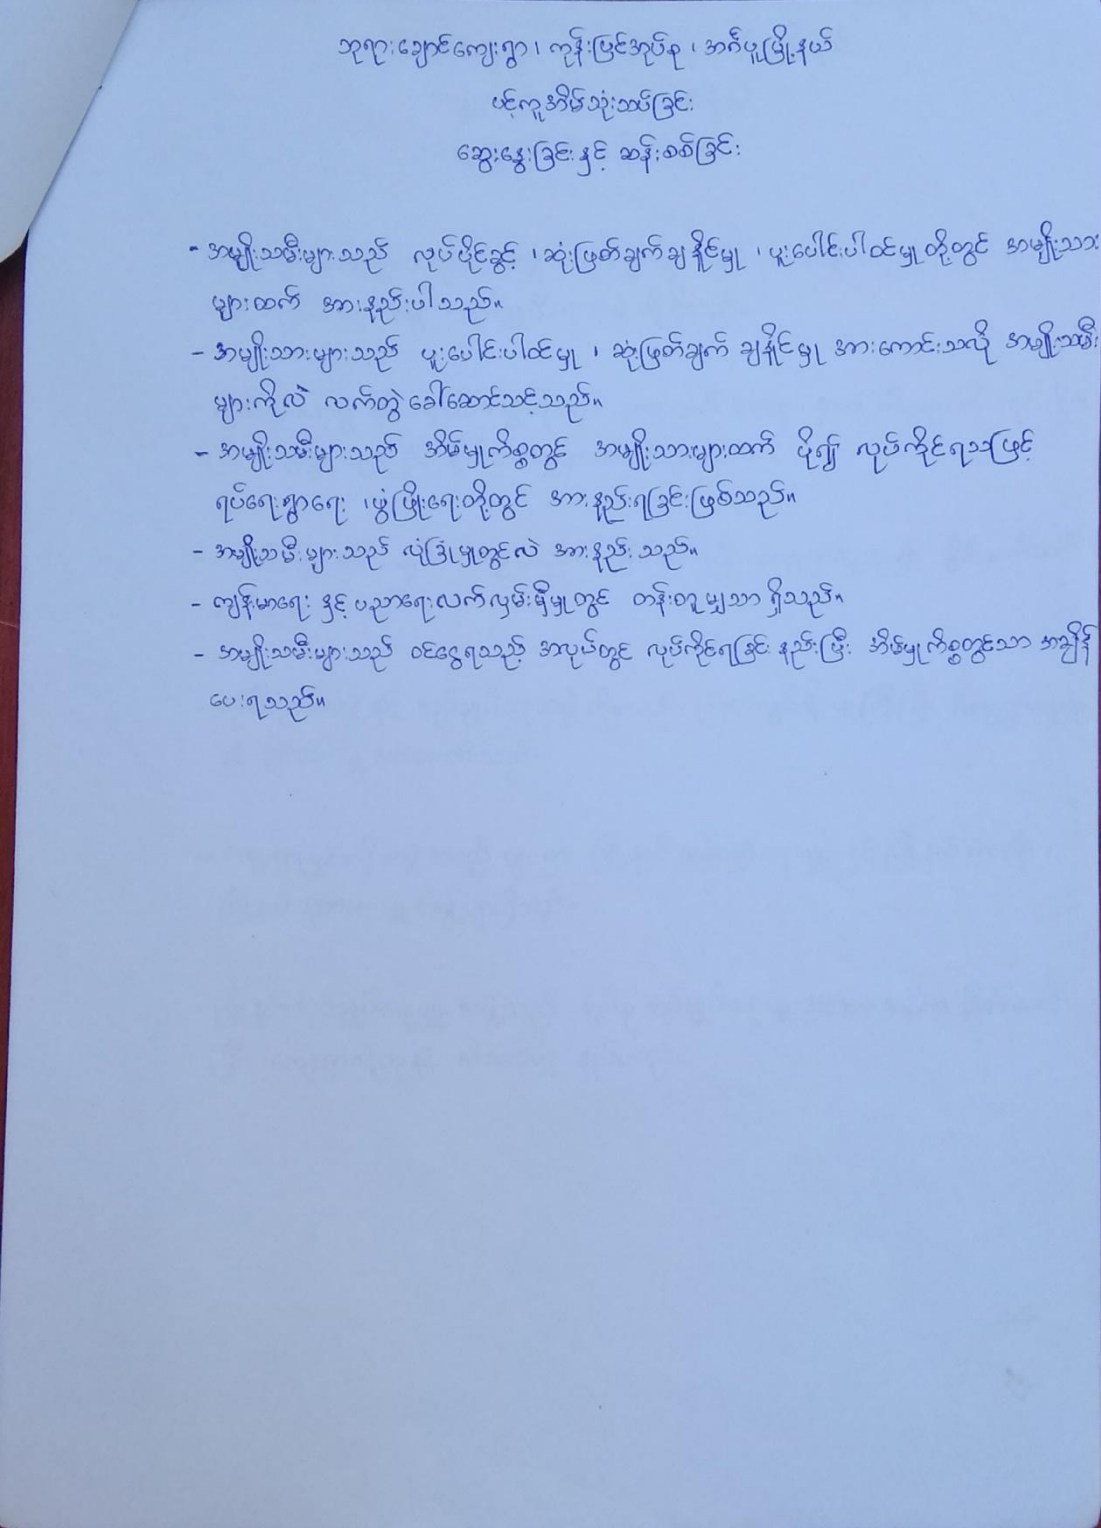 ဘုရားချောင်ကျေးရွာ၊ ကုန်းပြင်အုပ်စု၊ အင်္ဂပူမြို့နယ်
ပင့်ကူအိမ်သုံးသပ်ခြင်း
ဆွေးနွေးခြင်းနှင့် ဆန်းစစ်ခြင်း
- အမျိုးသမီးများသည် လုပ်ပိုင်ခွင့်၊ ဆုံးဖြတ်ချက်ချနိူင်မှု၊ ပူးပေါင်းပါဝင်မှုတို့တွင် အမျိုးသား
များထက် အားနည်းပါသည်။
- အမျိုးသားများသည် ပူးပေါင်းပါဝင်မှု၊ ဆုံးဖြတ်ချက် ချနိူင်မှု အားကောင်းသလို အမျိုးသမီး
များကိုလဲ လက်တွဲခေါ်ဆောင်သင့်သည်။
- အမျိုးသမီးများသည် အိမ်မှုကိစ္စတွင် အမျိုးသားများထက် ပို၍ လုပ်ကိုင်ရသဖြင့်
ရပ်ရေးရွာရေး ၊ဖွံဖြိုးရေးတို့တွင် အားနည်းရခြင်းဖြစ်သည်။
- အမျိုးသမီးများသည် လုံခြုံမှုတွင်လဲ အားနည်းသည်။
- ကျန်းမာရေး နှင့် ပညာရေးလက်လှမ်းမှီမှုတွင် တန်းတူမျှသာ ရှိသည်။
- အမျိုးသမီးများသည် ဝင်ငွေရသည့် အလုပ်တွင် လုပ်ကိုင်ရခြင်းနည်းပြီး အိမ်မှုကိစ္စတွင်သာ အချိန်
ပေးရသည်။